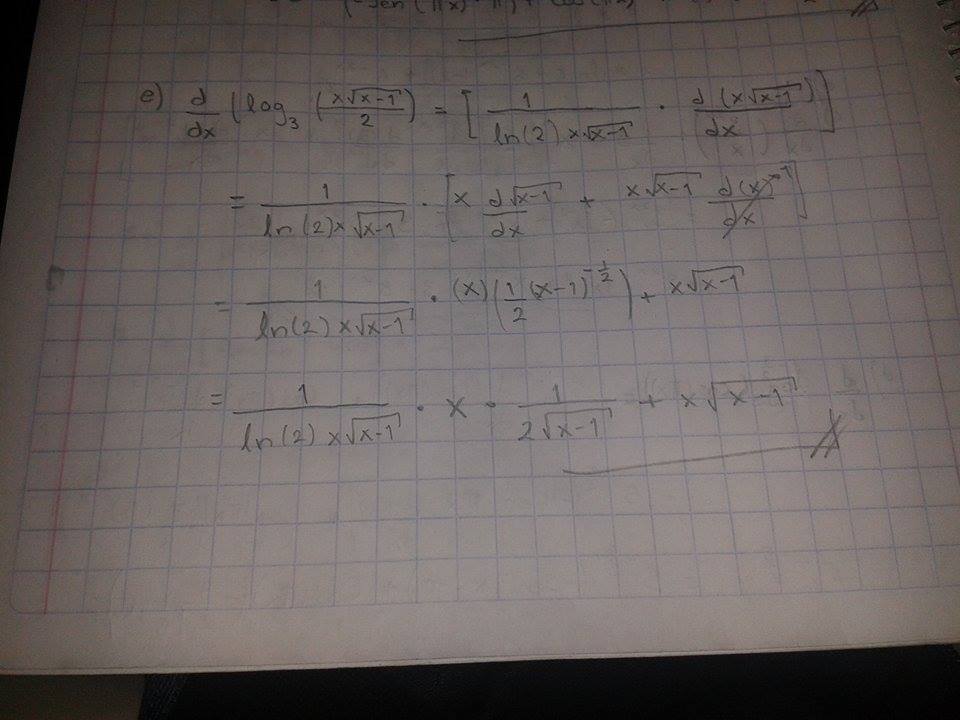 (-sen(πx)·π) + cos(πx)
e) d/dx (log₃ (x√(x-1)/2) = [1/(ln(2) x√(x-1)) · d(x√(x-1))/dx]
= 1/(ln(2)x√(x-1)) · [x d√(x-1)/dx + x√(x-1) d(x)/dx 1]
= 1/(ln(2) x√(x-1)) · (x)(1/2 (x-1)^(-1/2)) + x√(x-1)
= 1/(ln(2) x√(x-1)) · x · 1/(2√(x-1)) + x√(x-1)